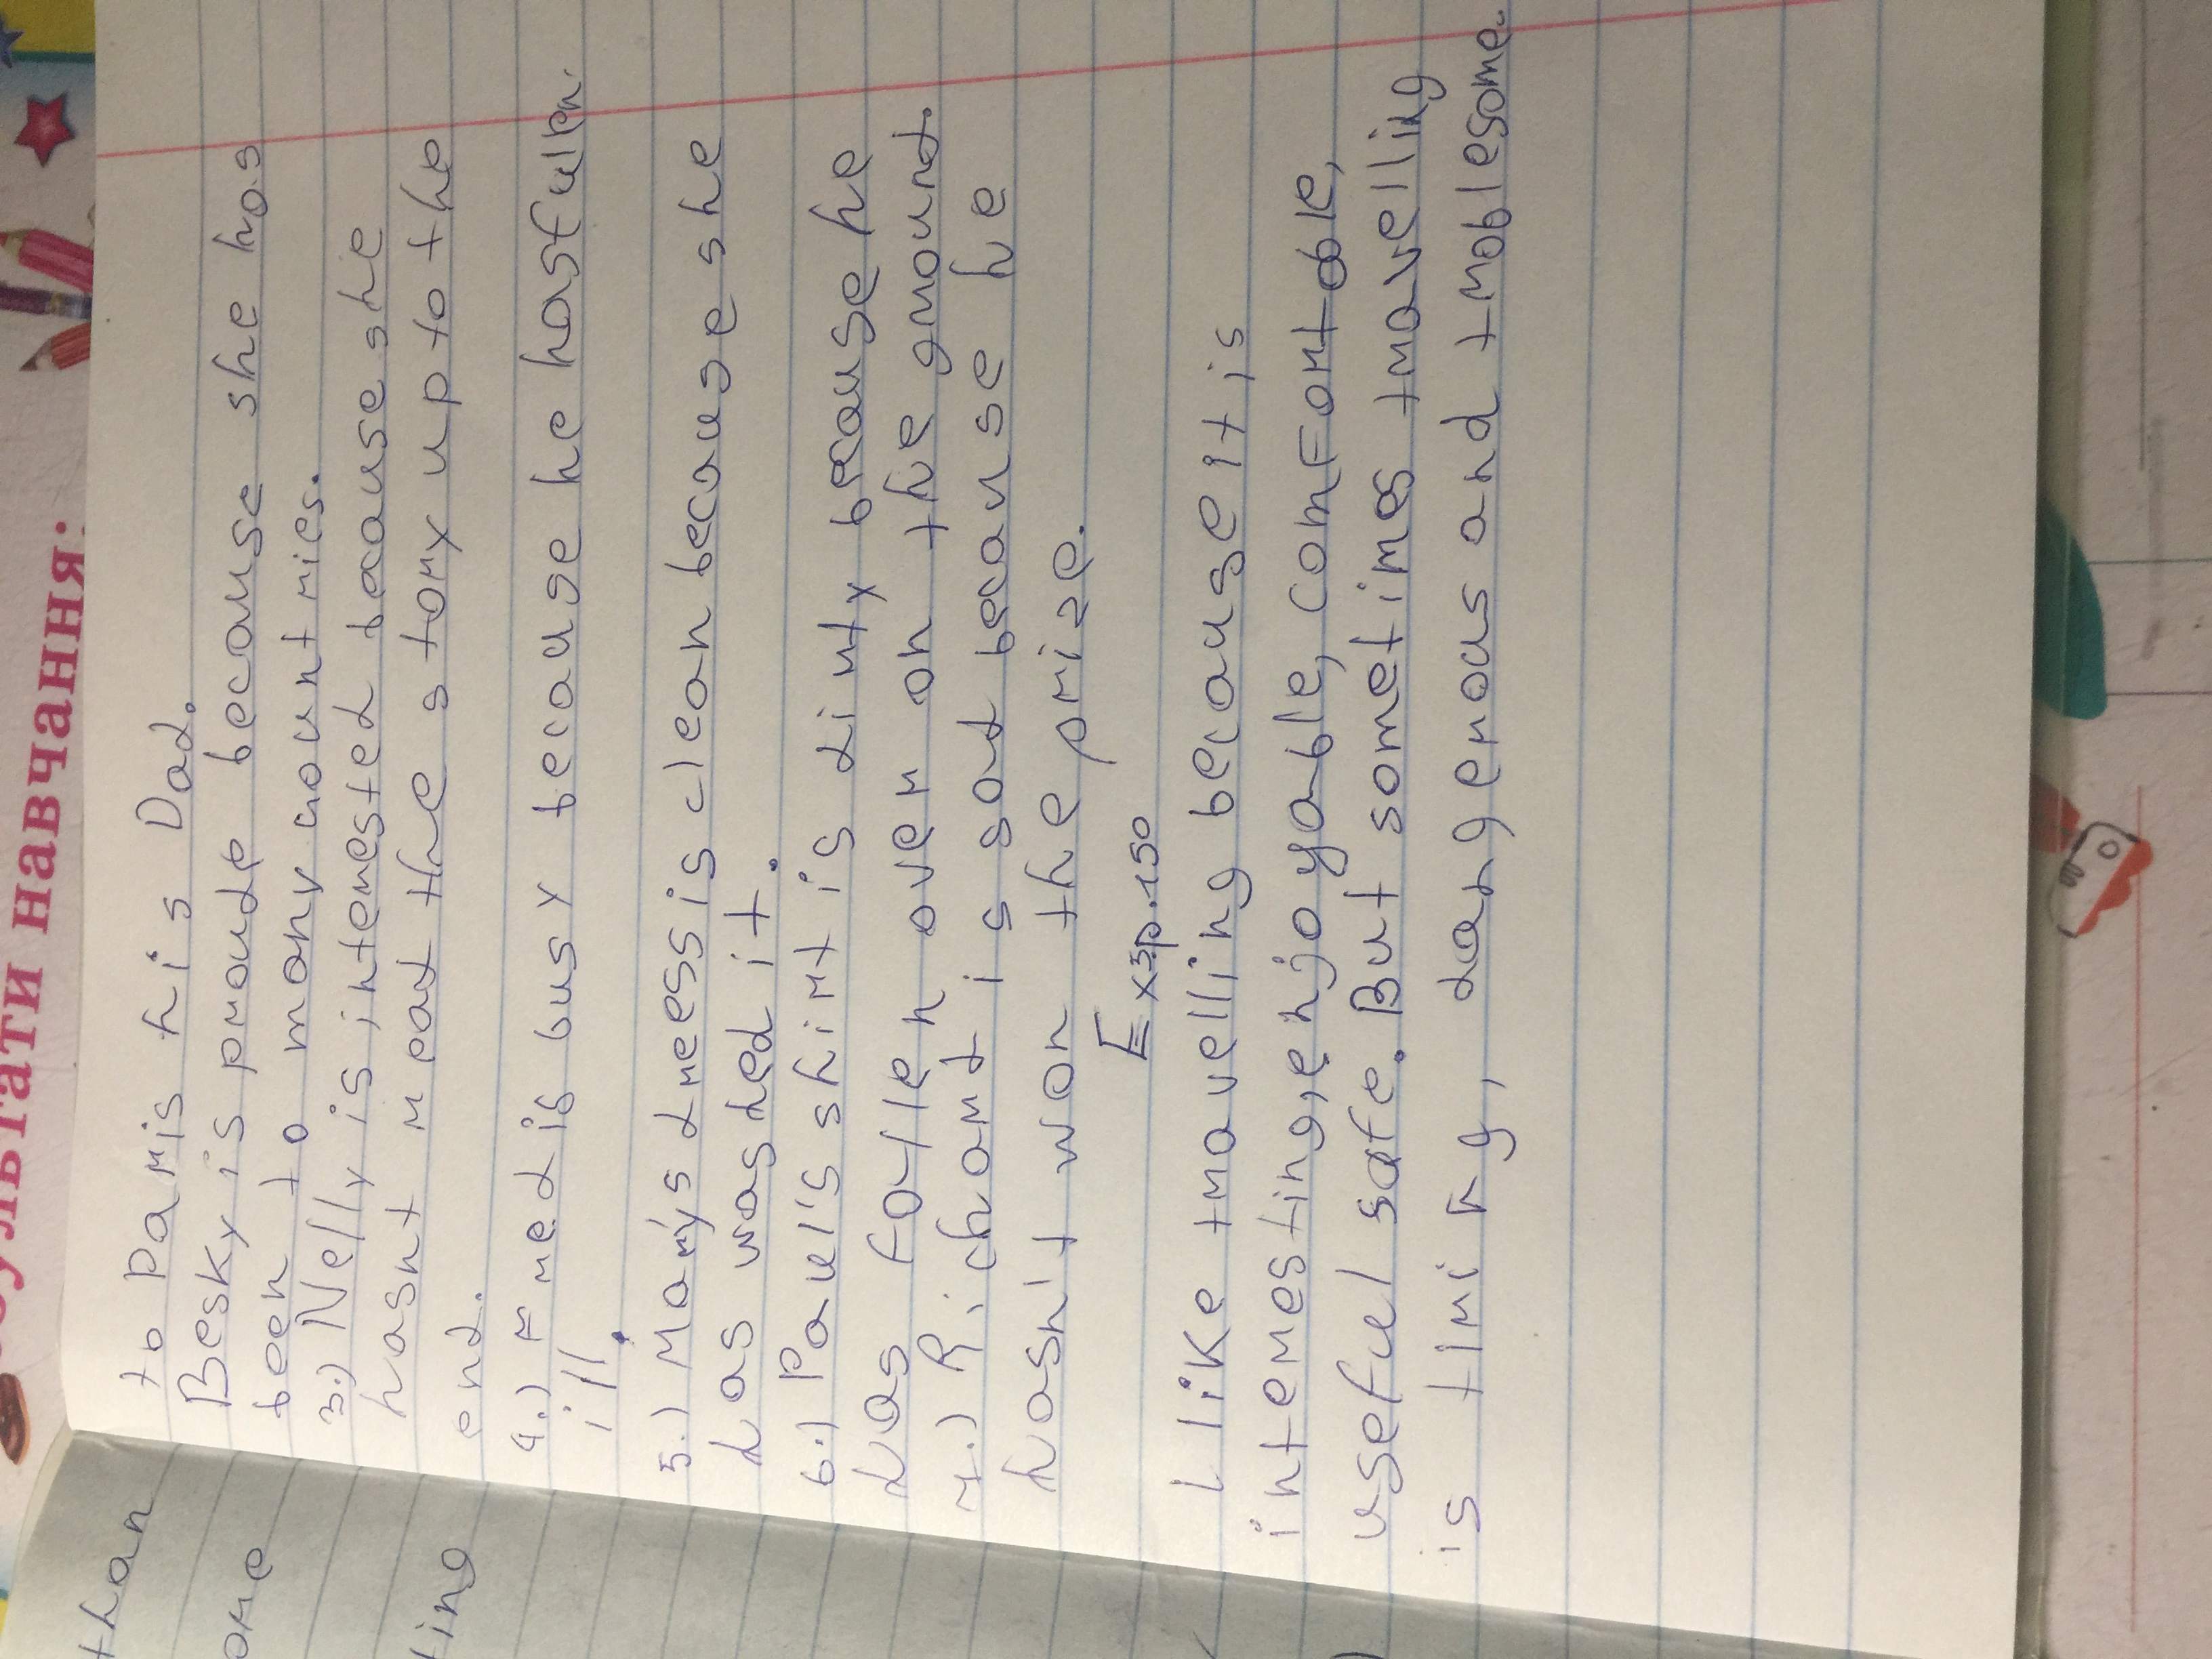 льтати навчання:
than
ome
ting
to Paris his Dad.
Besky is proude because she has
been to many countries.
3.) Nelly is interested because she
hasnt read the story up to the
end.
4.) Fred is busy because he hasfullen
ill.
5.) Mary's dress is clean because she
has washed it.
6.) Paul's shirt is dirty because he
has fallen over on the ground.
7.) Richard is sad because he
hasn't won the prize.
Ex3p.150
I like travelling because it is
interesting, enjoyable, comfortable,
useful safe. But sometimes travelling
is tiring, dangerous and troblesome.